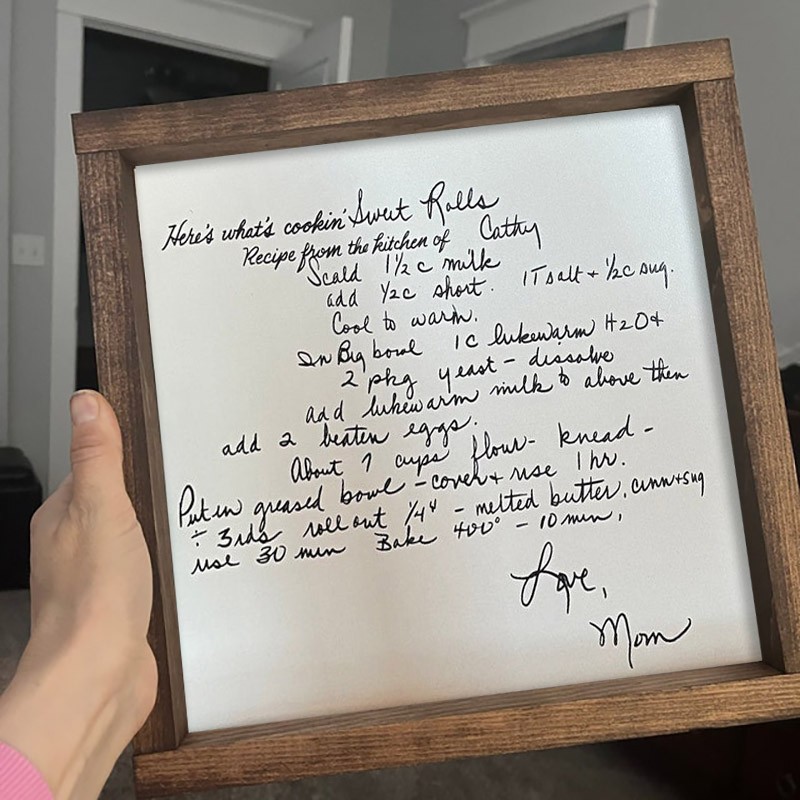 Here's what's cookin' Sweet Rolls
Recipe from the kitchen of Cathy
Scald 1½ c milk
add ½ c short. 1 T salt + ½ c sug.
Cool to warm.
In Big bowl 1 c lukewarm H2O +
2 pkg yeast - dissolve
add lukewarm milk to above then
add 2 beaten eggs.
About 7 cups flour - knead -
Put in greased bowl - cover + rise 1 hr.
÷ 3rds roll out ¼" - melted butter, cinn + sug
rise 30 min Bake 400° - 10 min,
Love,
Mom